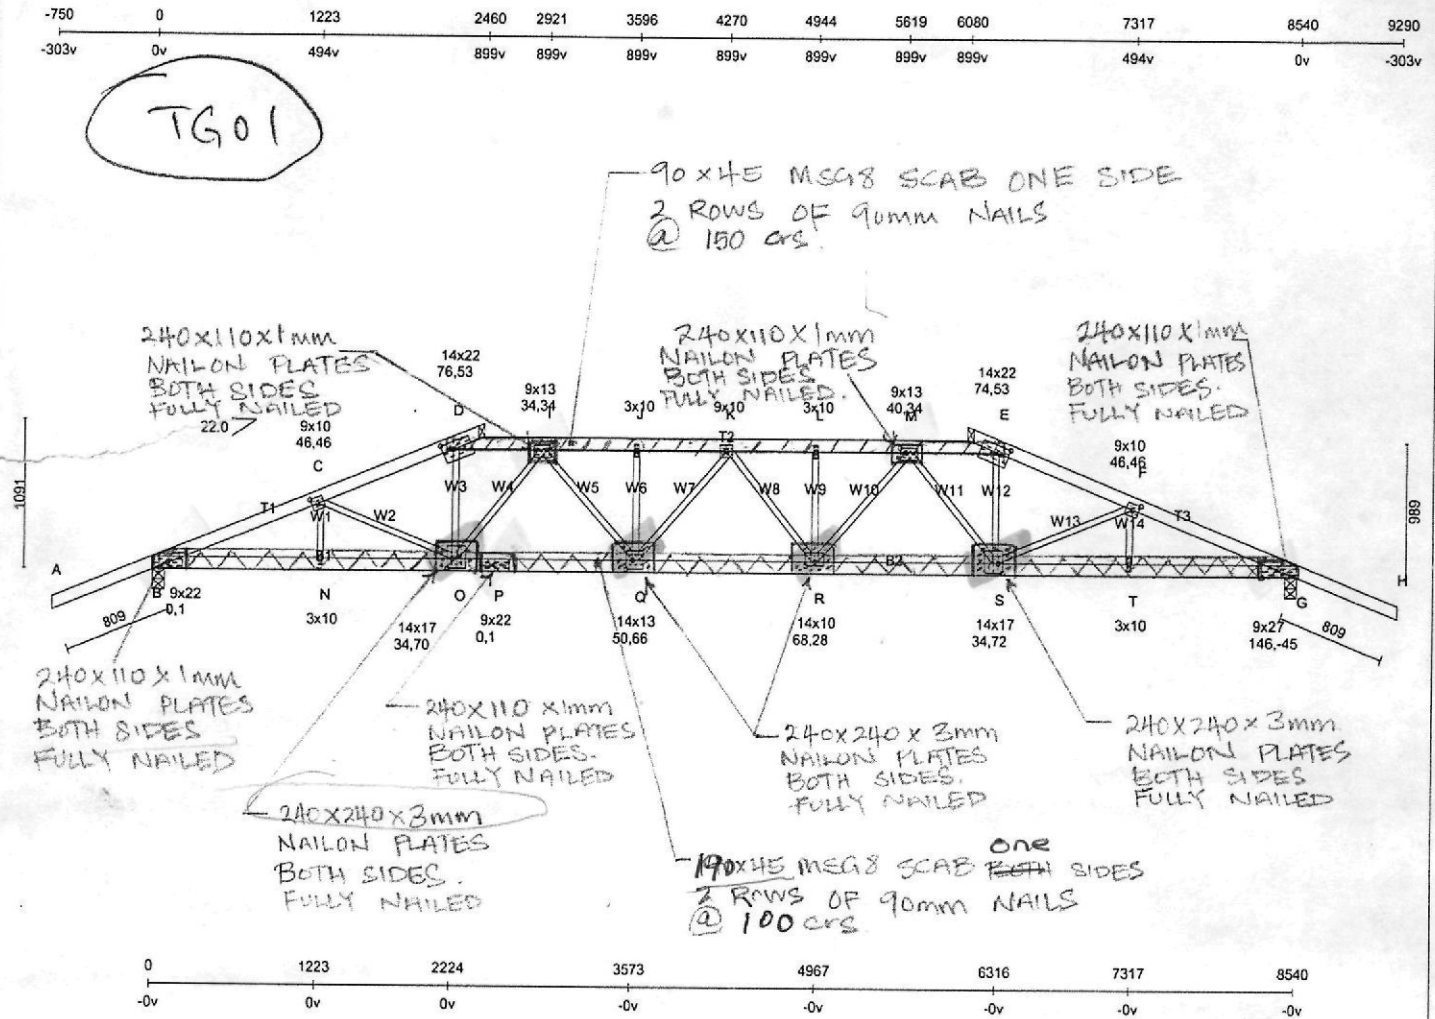 -750 0 1223 2460 2921 3596 4270 4944 5619 6080 7317 8540 9290
-303v 0v 494v 899v 899v 899v 899v 899v 899v 899v 494v 0v -303v
TG01
90x45 MSG8 SCAB ONE SIDE
2 ROWS OF 90mm NAILS
@ 150 crs.
240x110x1mm
NAILON PLATES
BOTH SIDES
FULLY NAILED
22.0
240x110x1mm
NAILON PLATES
BOTH SIDES
FULLY NAILED.
240x110x1mm
NAILON PLATES
BOTH SIDES.
FULLY NAILED
9x10
46,46
C
14x22
76,53
D
9x13
34,34
I
3x10
J
9x10
K
3x10
L
9x13
40,34
M
14x22
74,53
E
9x10
46,46
F
T1 T2 T3
W1 W2 W3 W4 W5 W6 W7 W8 W9 W10 W11 W12 W13 W14
B1 B2
1091
989
A B N O P Q R S T G H
809
9x22
0,1
3x10
14x17
34,70
9x22
0,1
14x13
50,66
14x10
68.28
14x17
34,72
3x10
9x27
146,-45
809
240x110x1mm
NAILON PLATES
BOTH SIDES
FULLY NAILED
240x110x1mm
NAILON PLATES
BOTH SIDES.
FULLY NAILED
240x240x3mm
NAILON PLATES
BOTH SIDES.
FULLY NAILED
240x240x3mm
NAILON PLATES
BOTH SIDES
FULLY NAILED
240x240x3mm
NAILON PLATES
BOTH SIDES.
FULLY NAILED
190x45 MSG8 SCAB BOTH one SIDES
2 ROWS OF 90mm NAILS
@ 100 crs
0 1223 2224 3573 4967 6316 7317 8540
-0v 0v 0v -0v -0v -0v -0v -0v